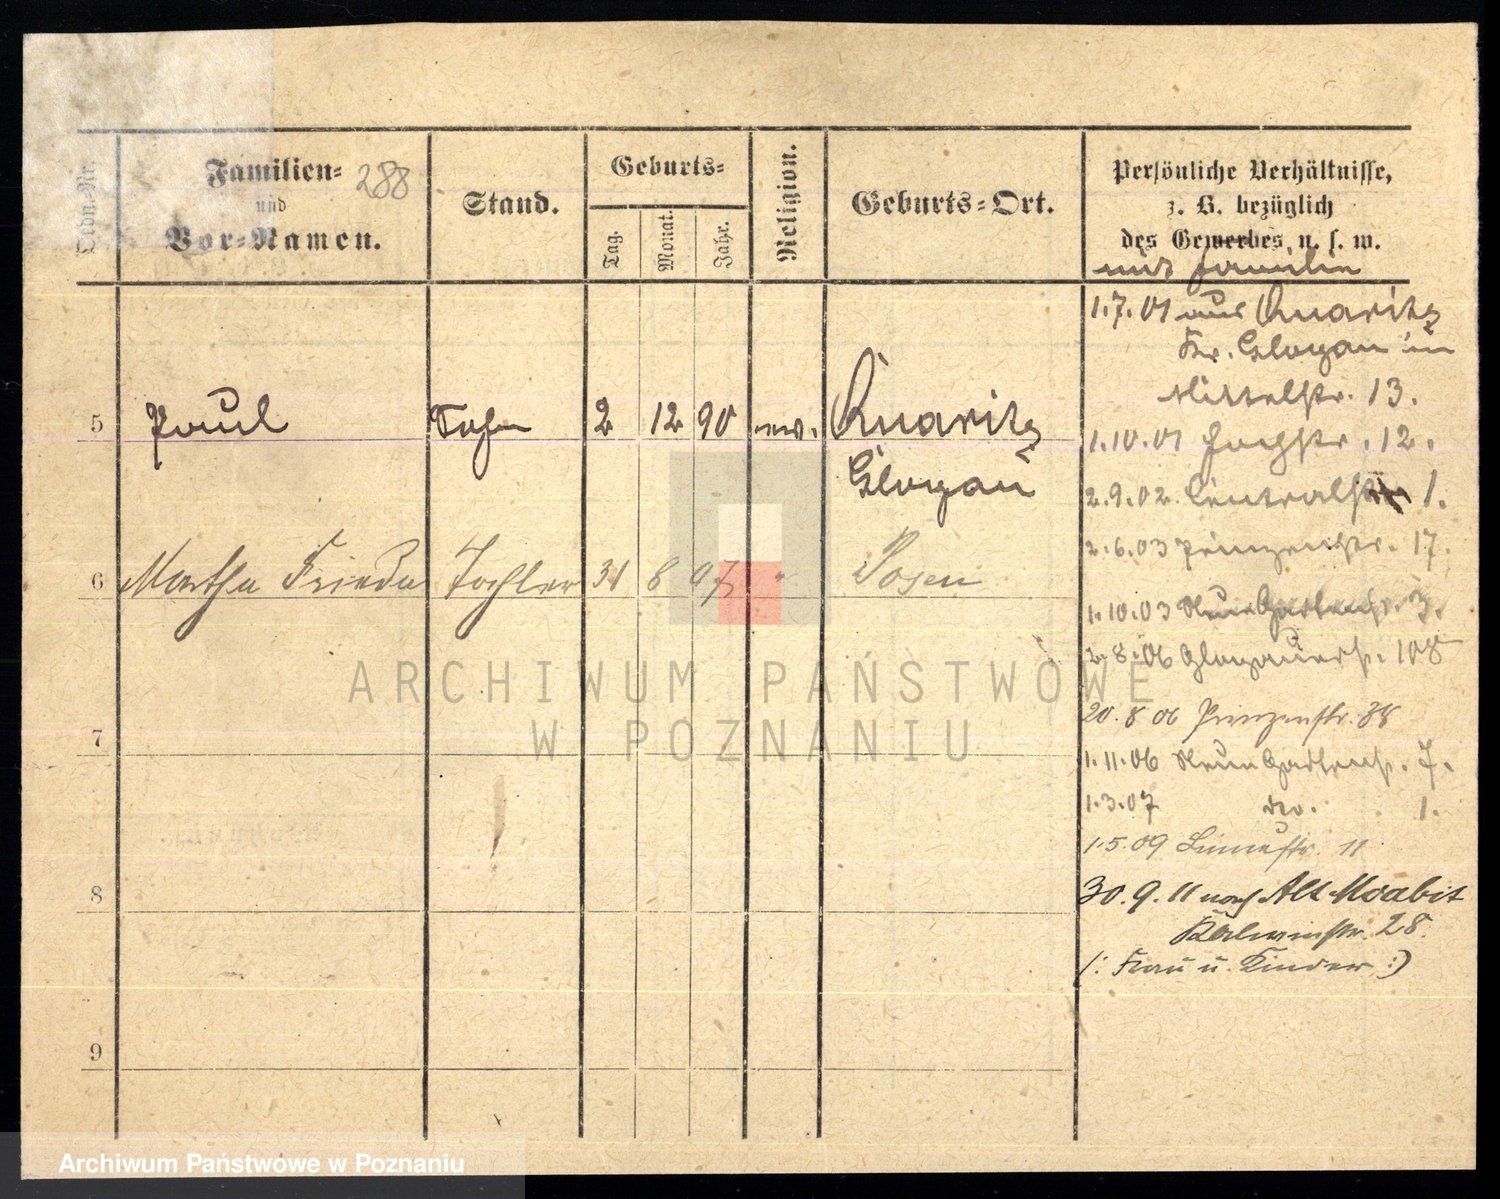 Lfdn. Nr.
Familien= 288
und
Vor=Namen.
Stand.
Geburts=
Tag.
Monat.
Jahr.
Religion.
Geburts=Ort.
Persönliche Verhältnisse,
z. B. bezüglich
des Gewerbes, u. s. w.
mit Familie
1.7.01 aus Quaritz
Kr. Glogau in
Mittelstr. 13.
5 Paul Sohn 2 12 90 ev. Quaritz
Glogau
1.10.01 Hochstr. 12.
2.9.02. Centralstr. 1.
2.6.03 Prinzenstr. 17.
6 Martha Frieda Tochter 31 8 07 " Posen
1.10.03 Neue Gartenstr. 3.
2.8.06 Glogauerstr. 108
20.8 06 Prinzenstr. 38
7
1.11.06 Neue Gartenstr. 7.
1.3.07 do. 1.
1.5.09 Linnestr. 11
8
30.9.11 nach Alt Moabit
28.
(: Frau u. Kinder :)
9
ARCHIWUM PAŃSTWOWE
W POZNANIU
Archiwum Państwowe w Poznaniu